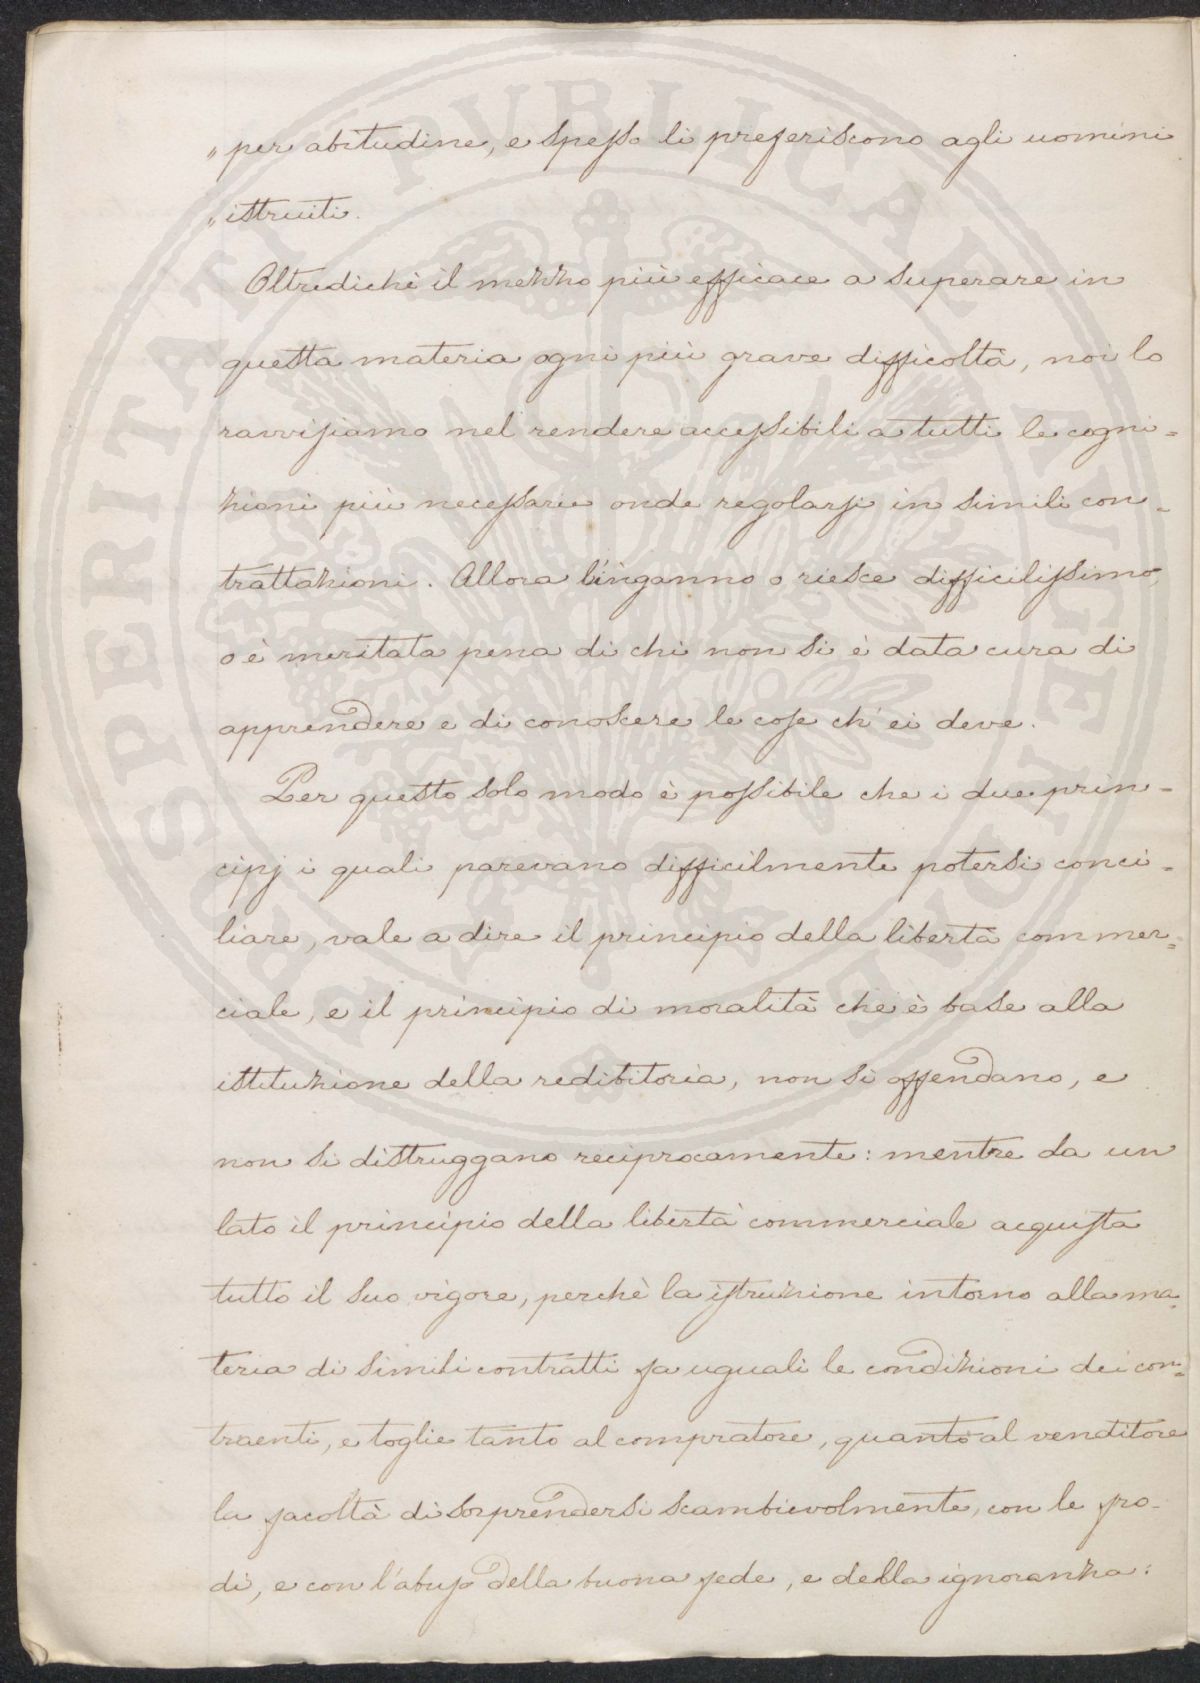 „ per abitudine, e spesso li preferiscono agli uomini
„ istruiti.
Oltredichè il mezzo più efficace a superare in
questa materia ogni più grave difficoltà, noi lo
ravvisiamo nel rendere accessibili a tutti le cogni=
zioni più necessarie onde regolarsi in simili con=
trattazioni. Allora l'inganno o riesce difficilissimo,
o è meritata pena di chi non si è data cura di
apprendere e di conoscere le cose ch'ei deve.
Per questo solo modo è possibile che i due prin=
cipj i quali parevano difficilmente potersi conci=
liare, vale a dire il principio della libertà commer=
ciale, e il principio di moralità che è base alla
istituzione della redibitoria, non si offendano, e
non si distruggano reciprocamente: mentre da un
lato il principio della libertà commerciale acquista
tutto il suo vigore, perchè la istruzione intorno alla ma=
teria di simili contratti fa uguali le condizioni dei con=
traenti, e toglie tanto al compratore, quanto al venditore
la facoltà di sorprendersi scambievolmente, con le fro-
di, e con l'abuso della buona fede, e della ignoranza:
PROSPERITATI PUBLICAE AUGENDAE